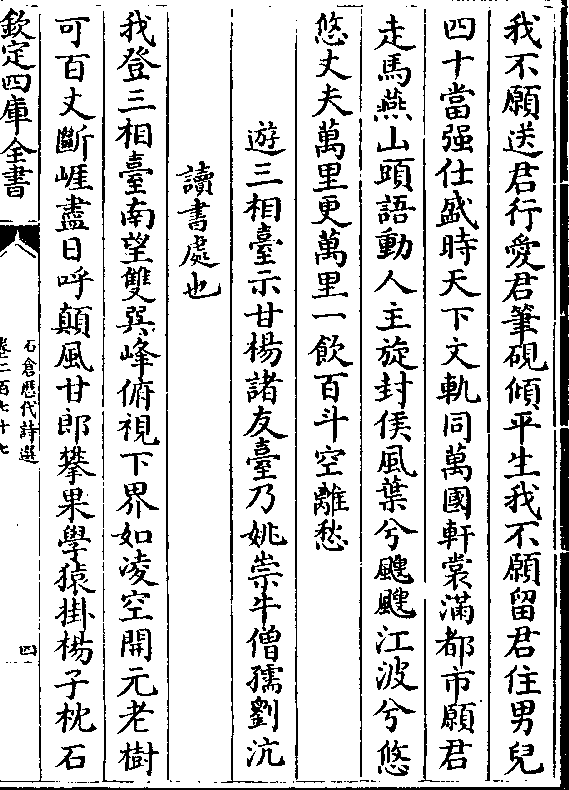 我不願送君行愛君筆硯傾平生我不願留君住男兒
四十當强仕盛時天下文軌同萬國軒裳滿都市願君
走馬燕山頭語動人主旋封侯風葉兮颼颼江波兮悠
悠丈夫萬里更萬里一飲百斗空離愁
遊三相臺示甘楊諸友臺乃姚崇牛僧孺劉沆
讀書處也
我登三相臺南望雙巽峰俯視下界如凌空開元老樹
可百丈斷崕盡日呼顛風甘郎攀果學猿掛楊子枕石
欽定四庫全書
石倉歷代詩選
卷二百七十七
四